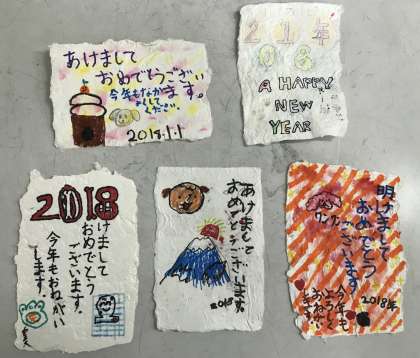 あけまして
おめでとうござい
ます。
今年もなかよくしてください。
2018.1.1
2018年
A HAPPY
NEW
YEAR
2018
あけまして
おめでとう
ございます。
今年もおねがい
します。
あけまして
おめでとうございます。
2018
明けまして
おめでとう
ございます
ワン
今年も
よろしく
おねがい
します
2018年